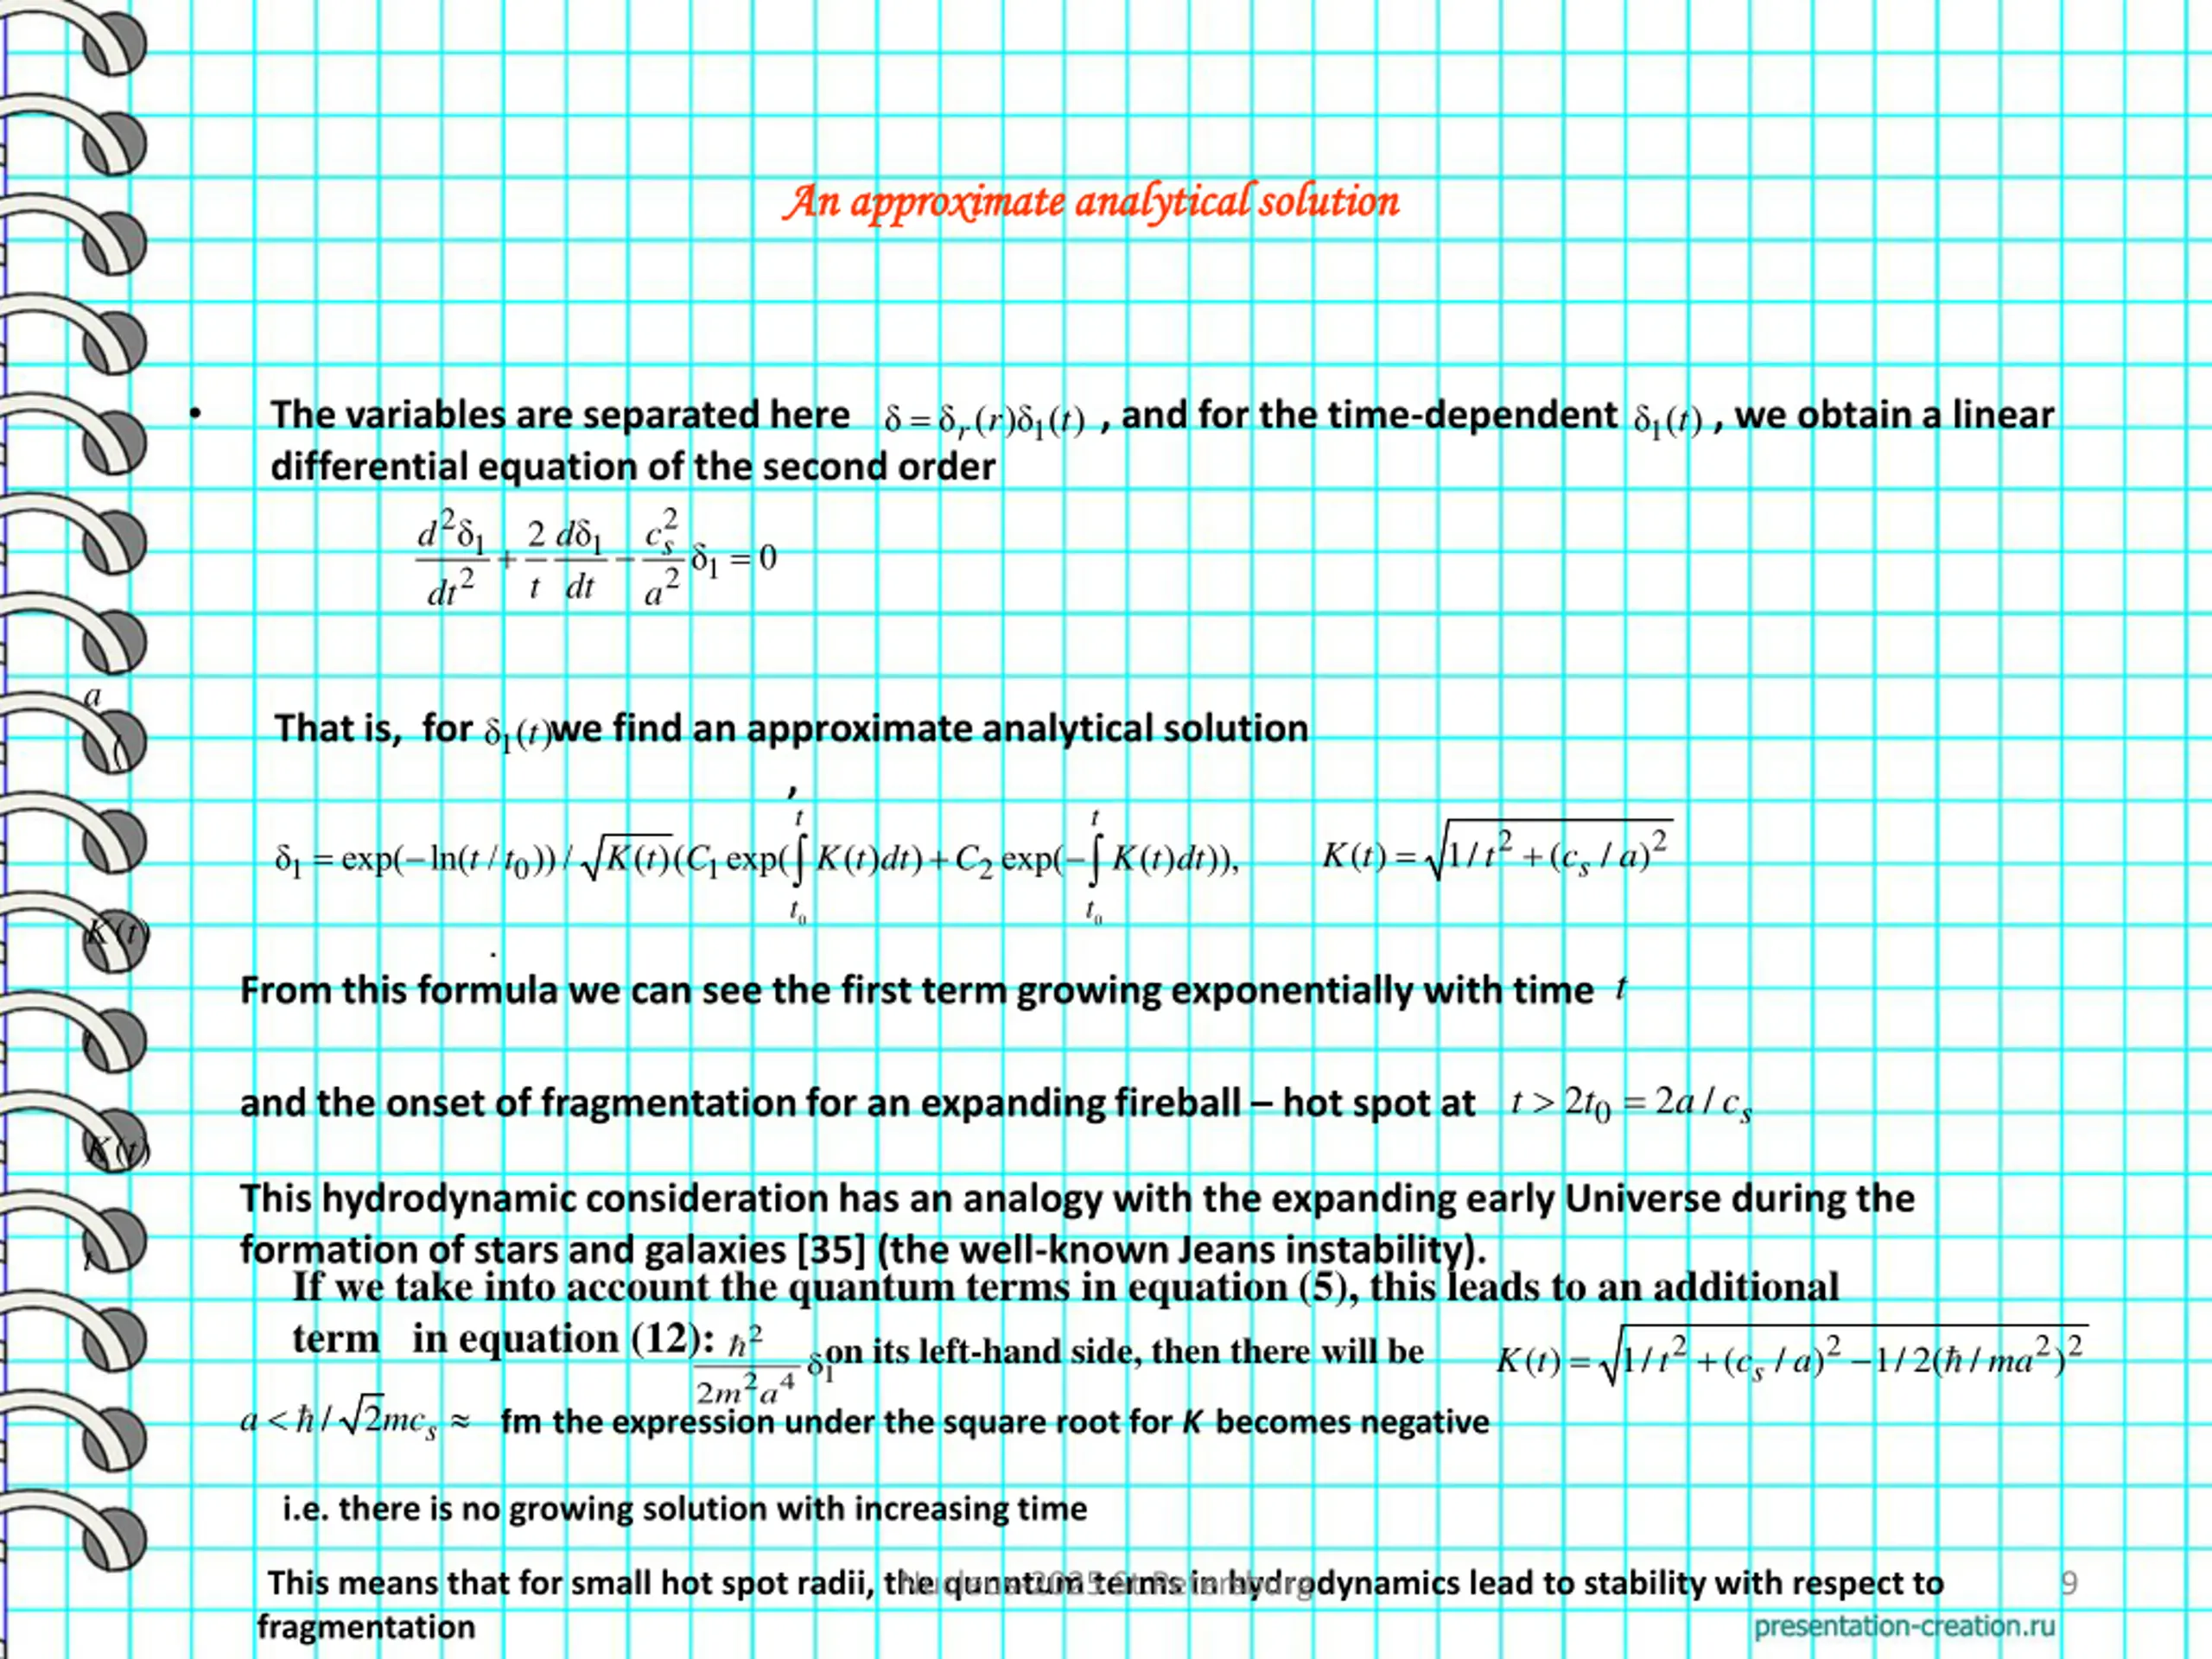 An approximate analytical solution
• The variables are separated here δ = δ_r(r)δ₁(t) , and for the time-dependent δ₁(t) , we obtain a linear
differential equation of the second order
d²δ₁/dt² + (2/t) dδ₁/dt − (c_s²/a²) δ₁ = 0
a
That is, for δ₁(t) we find an approximate analytical solution
(
,
δ₁ = exp(−ln(t / t₀)) / √K(t) (C₁ exp(∫_{t₀}^{t} K(t)dt) + C₂ exp(−∫_{t₀}^{t} K(t)dt)), K(t) = √(1/t² + (c_s / a)²)
K(t)
.
From this formula we can see the first term growing exponentially with time t
and the onset of fragmentation for an expanding fireball – hot spot at t > 2t₀ = 2a / c_s
K(t)
This hydrodynamic consideration has an analogy with the expanding early Universe during the
formation of stars and galaxies [35] (the well-known Jeans instability).
t
If we take into account the quantum terms in equation (5), this leads to an additional
term in equation (12): ħ²/(2m²a⁴) δ₁ on its left-hand side, then there will be K(t) = √(1/t² + (c_s / a)² − 1/2(ħ / ma²)²)
a < ħ / √2mc_s ≈ fm the expression under the square root for K becomes negative
i.e. there is no growing solution with increasing time
This means that for small hot spot radii, the quantum terms in hydrodynamics lead to stability with respect to
fragmentation
Nucleus-2025 St.Petersburg
9
presentation-creation.ru